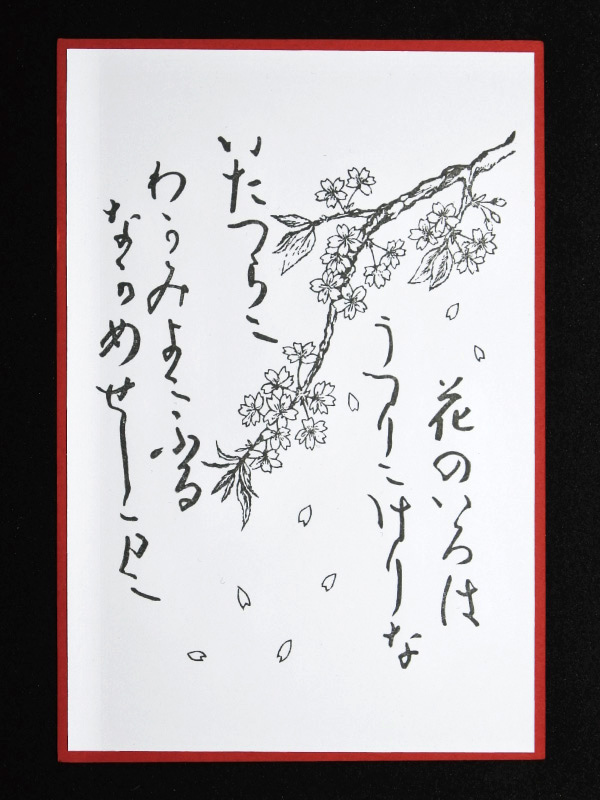 花のいろは
うつりにけりな
いたつらに
わかみよにふる
なかめせしまに